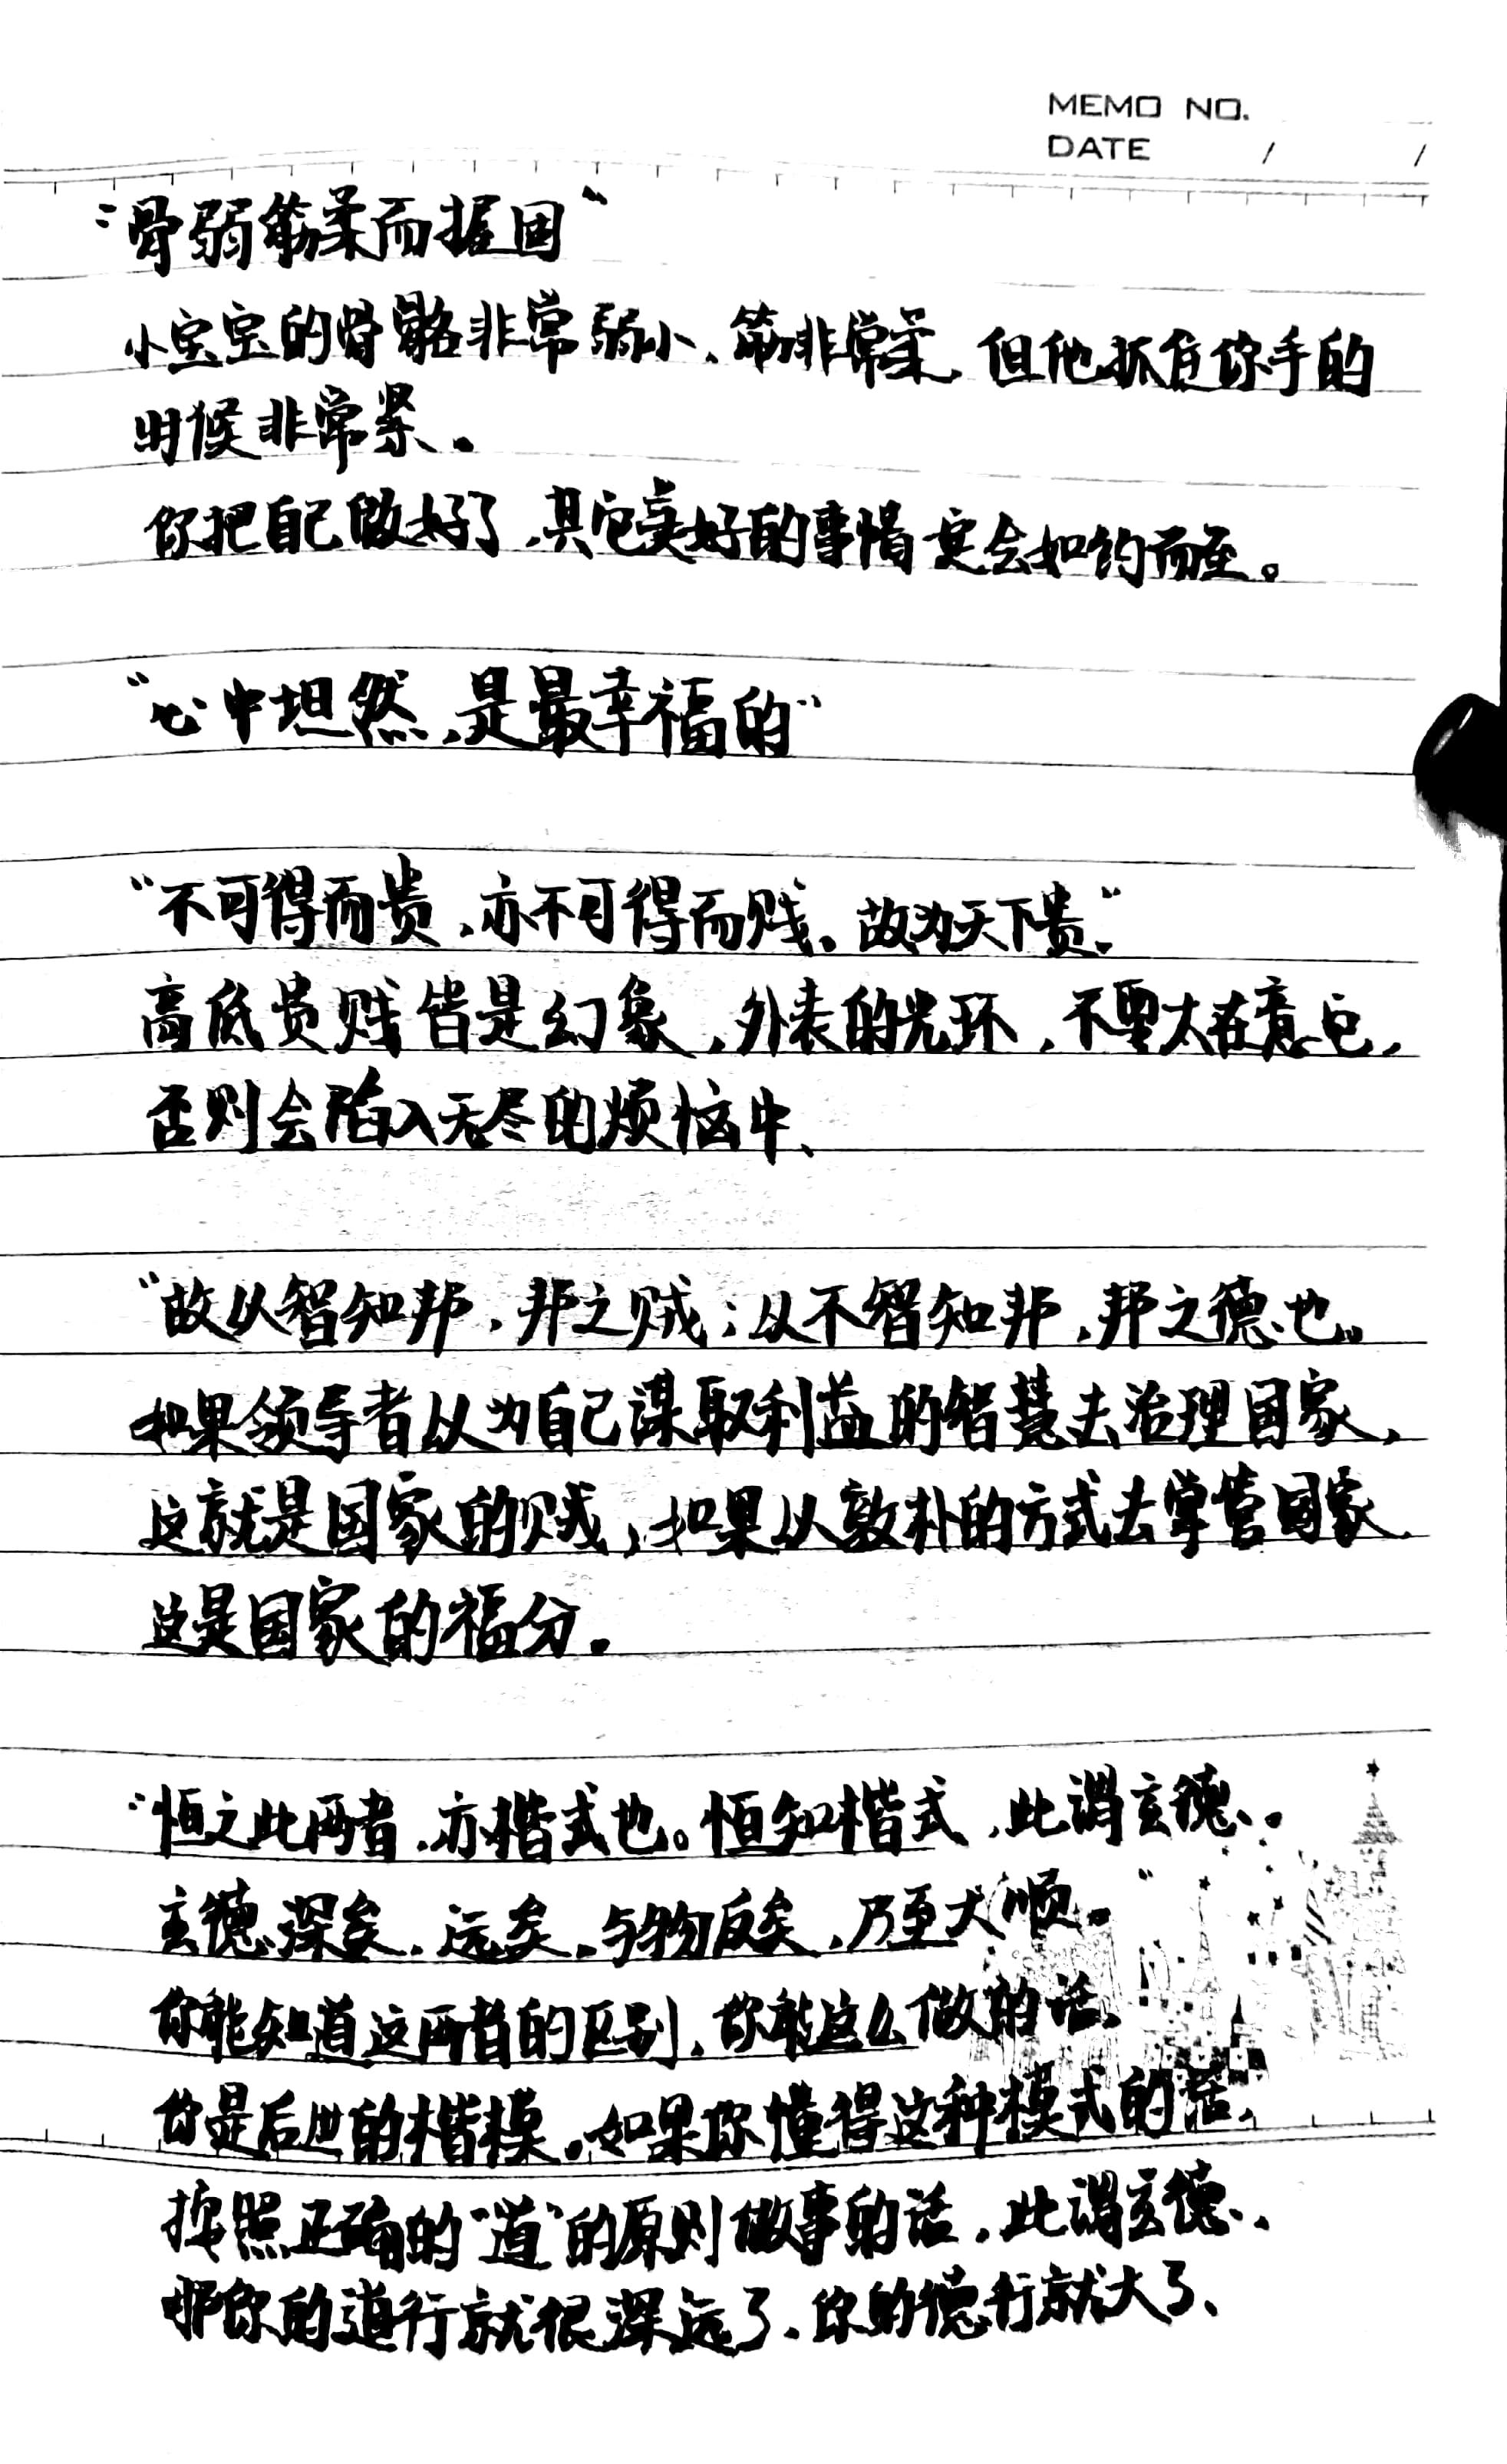 MEMO NO.
DATE / /
“骨弱筋柔而握固”
小宝宝的骨骼非常弱小、筋非常柔,但他抓住你手的
时候非常紧。
你把自己做好了,其它美好的事情定会如约而至。
“心中坦然,是最幸福的”
“不可得而贵,亦不可得而贱。故为天下贵。”
高低贵贱皆是幻象,外表的光环,不要太在意它,
否则会陷入无尽的烦恼中、
“故以智知邦,邦之贼;以不智知邦,邦之德也。”
如果领导者以为自己谋取利益的智慧去治理国家,
这就是国家的贼,如果以敦朴的方式去掌管国家
这是国家的福分。
“恒之此两者,亦楷式也。恒知楷式,此谓玄德。
玄德深矣,远矣,与物反矣,乃至大顺。”
你能知道这两者的区别,你能这么做的话,
你是后世的楷模。如果你懂得这种模式的话,
按照正确的“道”的原则做事的话,此谓玄德、
那你的道行就很深远了、你的德行就大了、